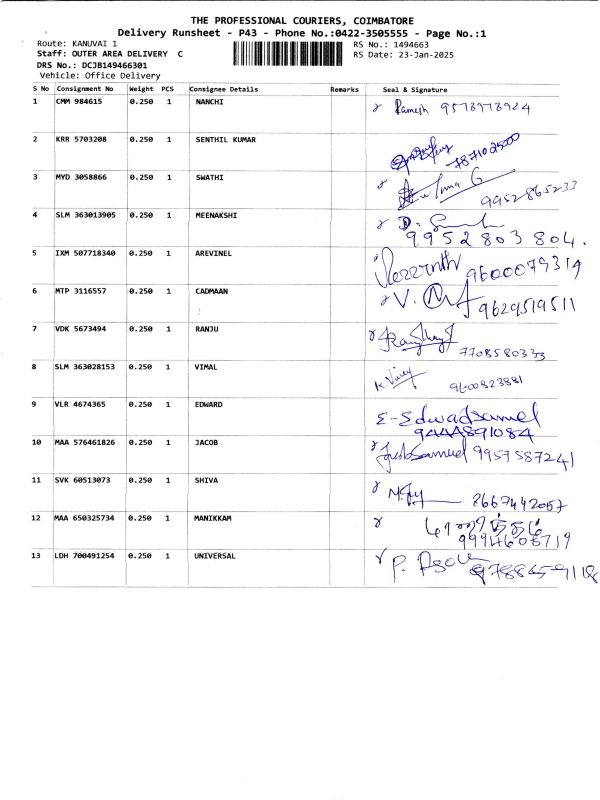 THE PROFESSIONAL COURIERS, COIMBATORE
Delivery Runsheet - P43 - Phone No.:0422-3505555 - Page No.:1
Route: KANUVAI 1 RS No.: 1494663
Staff: OUTER AREA DELIVERY C RS Date: 23-Jan-2025
DRS No.: DCJB149466301
Vehicle: Office Delivery
S No Consignment No Weight PCS Consignee Details Remarks Seal & Signature
1 CMM 984615 0.250 1 NANCHI Ramesh 9578978924
2 KRR 5703208 0.250 1 SENTHIL KUMAR 7871025000
3 MYD 3058866 0.250 1 SWATHI 9952865233
4 SLM 363013905 0.250 1 MEENAKSHI D.
9952803804.
5 IXM 507718340 0.250 1 AREVINEL 9600079314
6 MTP 3116557 0.250 1 CADMAAN V. 9629519511
7 VDK 5673494 0.250 1 RANJU
7708580333
8 SLM 363028153 0.250 1 VIMAL K
9600823881
9 VLR 4674365 0.250 1 EDWARD E-Edwardsamel
9444891084
10 MAA 576461826 0.250 1 JACOB 9957587241
11 SVK 60513073 0.250 1 SHIVA 8667442057
12 MAA 650325734 0.250 1 MANIKKAM
9994605719
13 LDH 700491254 0.250 1 UNIVERSAL P. 9788659118